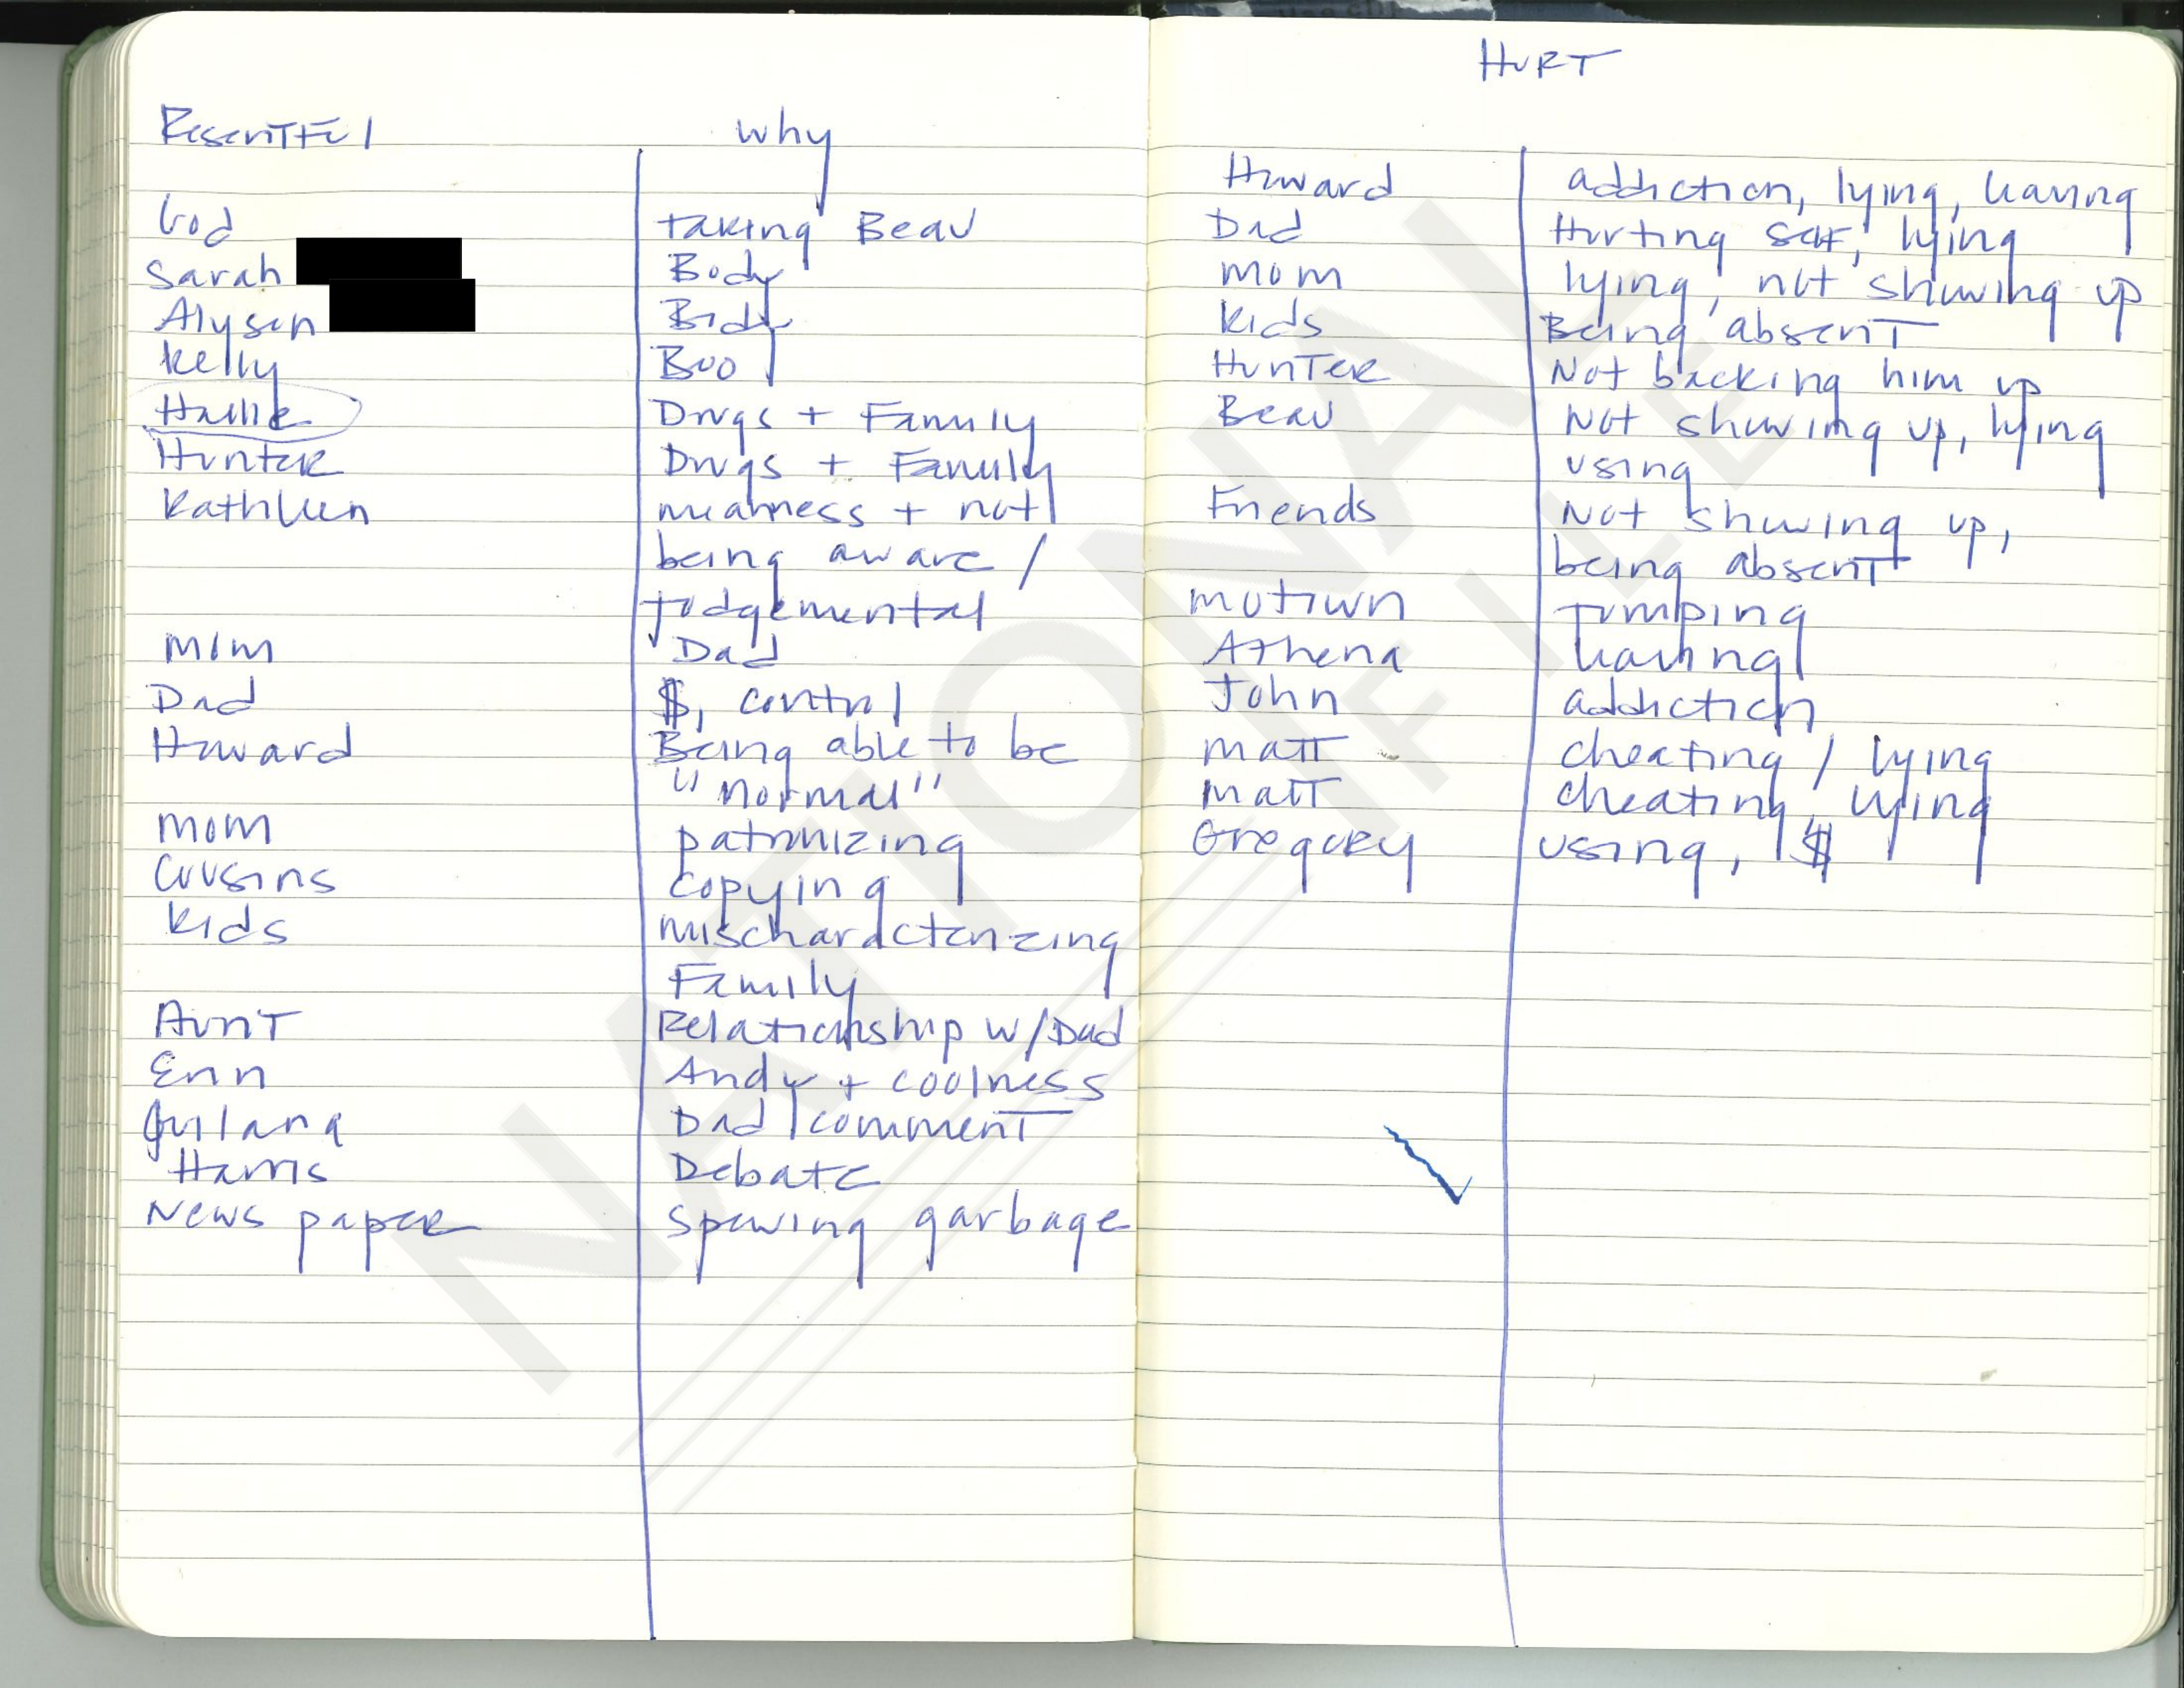 Resentful why
God taking Beau
Sarah Body
Alysen Body
Kelly Boo
Hallie Drugs + Family
Hunter Drugs + Family
Kathleen meanness + not
being aware /
judgemental
Mom Dad
Dad $, control
Howard Being able to be
"normal"
mom patronizing
Cousins copying
Kids mischaracterizing
Family
Aunt Relationship w/Dad
Erin Andy + coolness
Juliana Dad comment
Harris Debate
News paper spewing garbage
HURT
Howard addiction, lying, leaving
Dad Hurting self, lying
mom lying, not showing up
kids Being absent
Hunter Not backing him up
Beau Not showing up, lying
using
Friends Not showing up,
being absent
motown jumping
Athena leaving
John addiction
matt cheating / lying
matt cheating, lying
Gregory using, $
NATIONAL
FILE